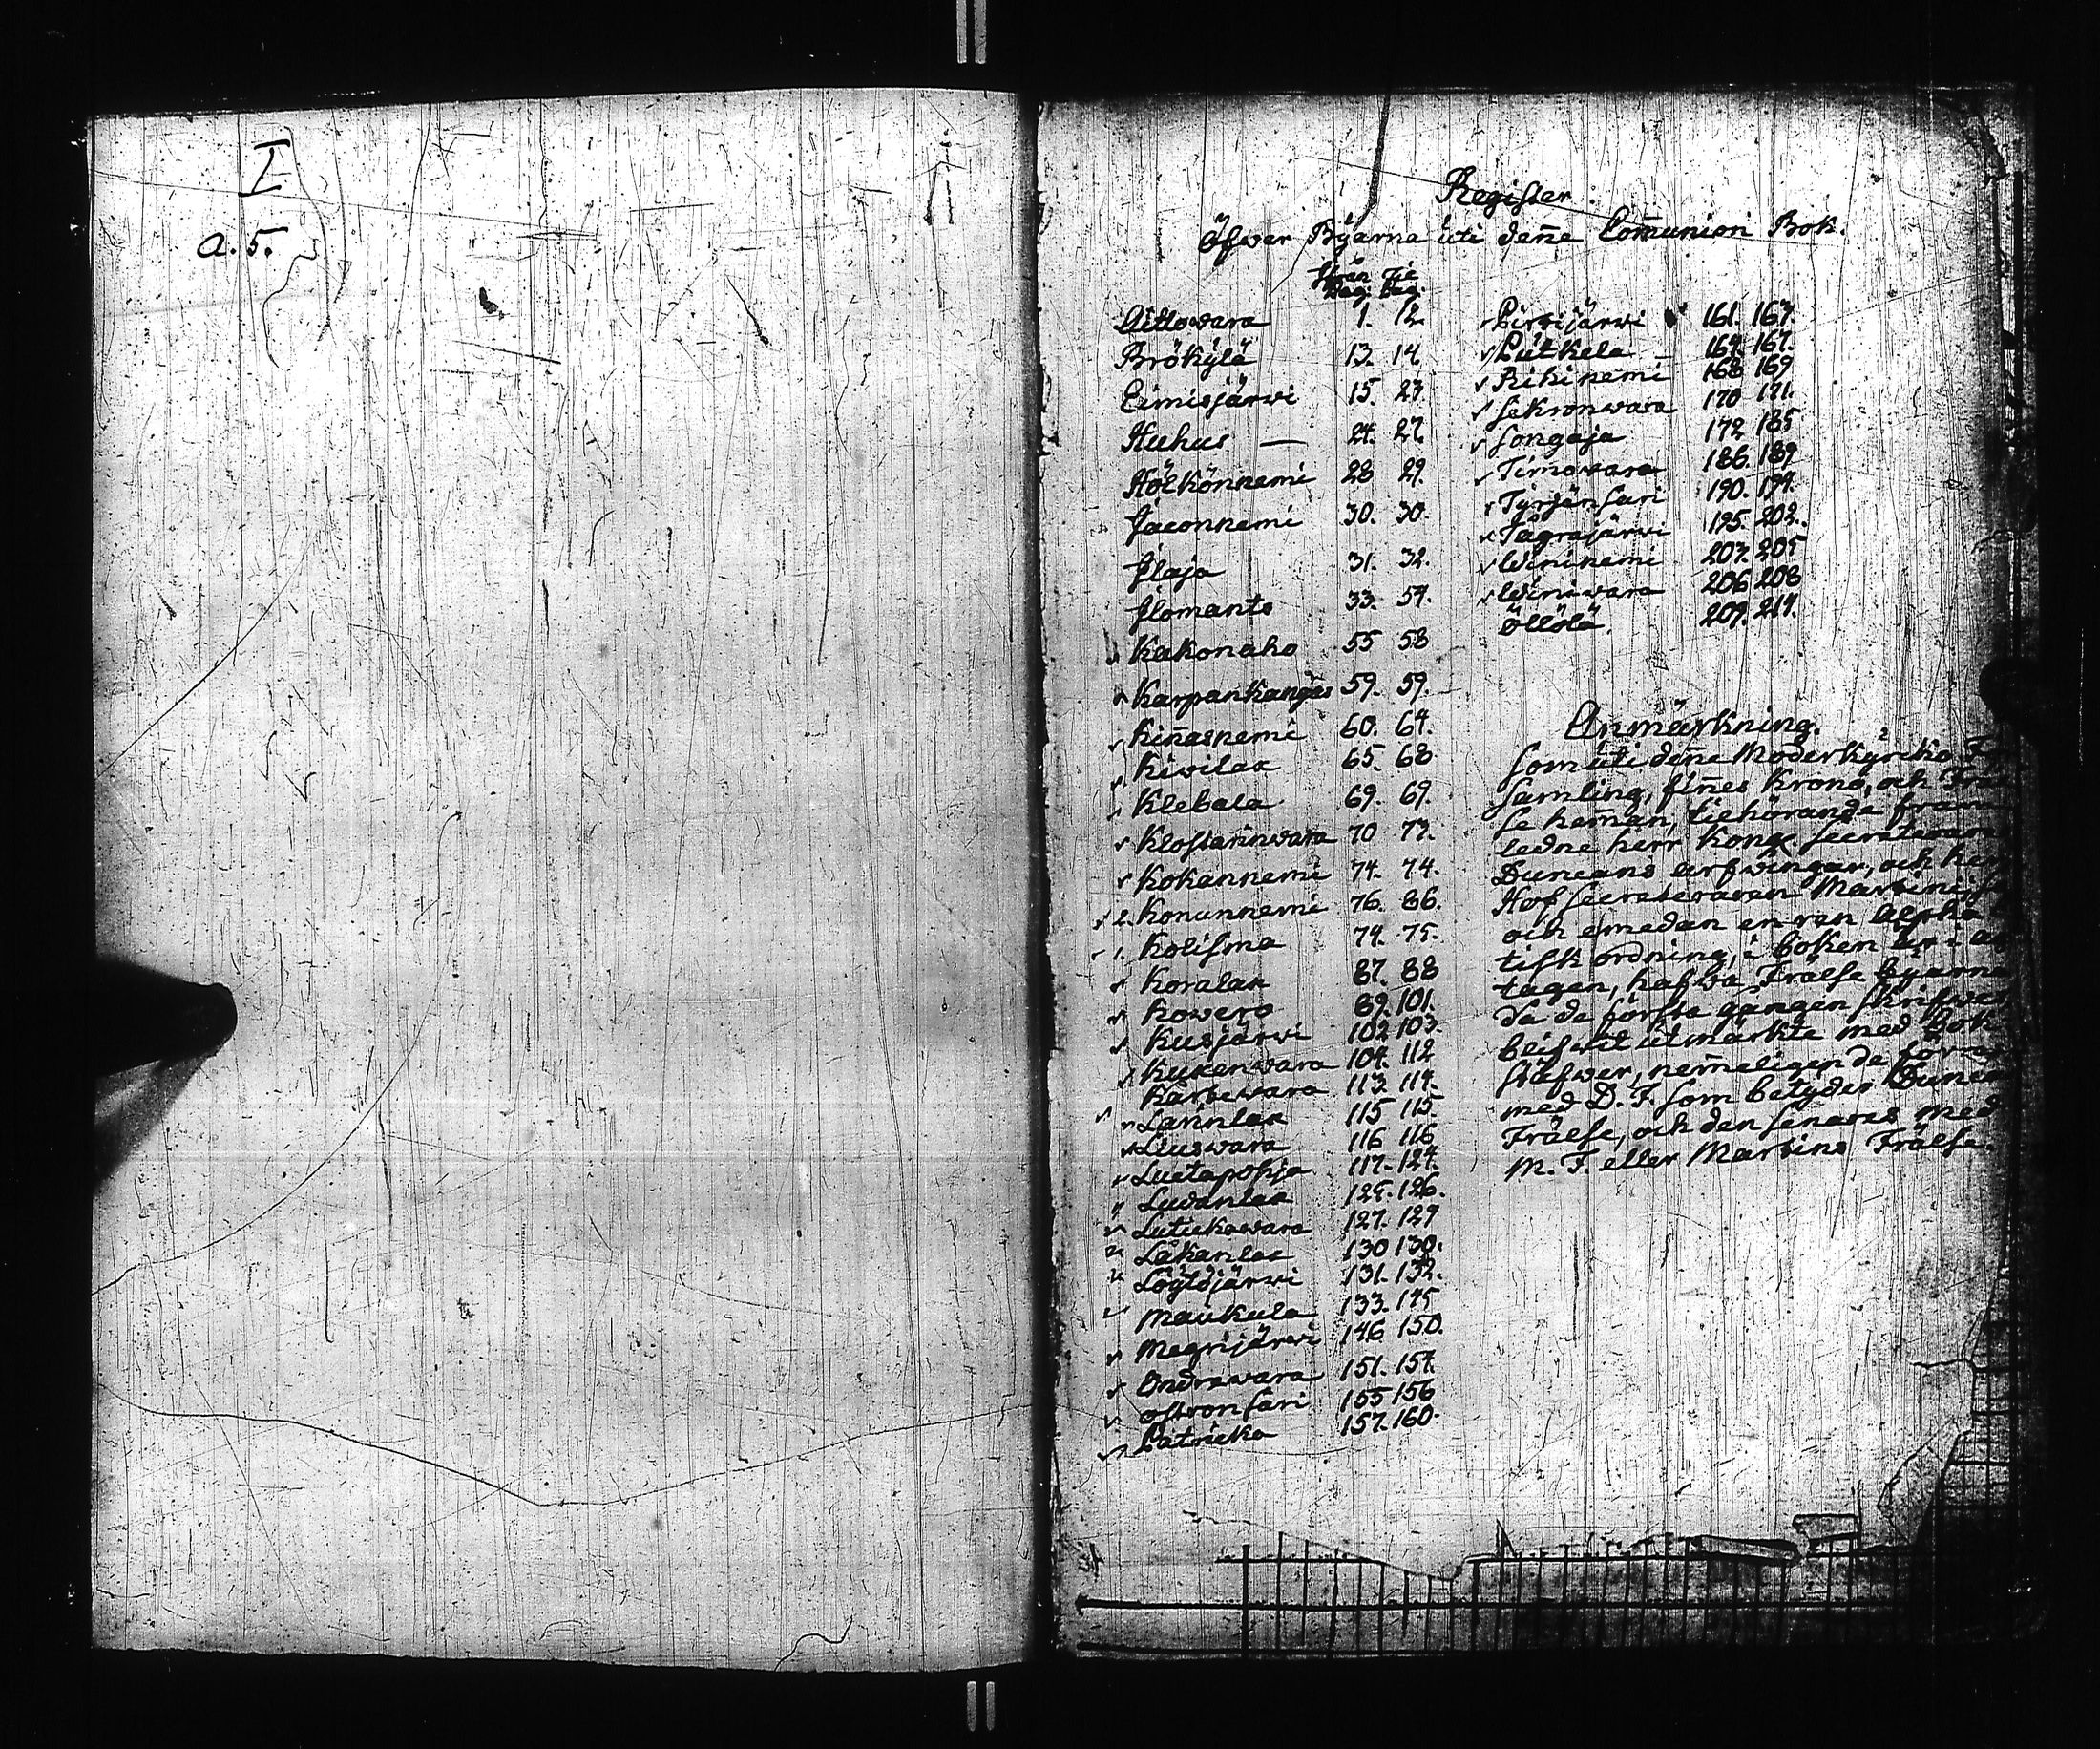 I
a. 5.
Register
Öfwer Byarna uti deñe Com̃union Bok.
från Til
Pag. Pag.
Aittowara 1. 12
Brökylä 13. 14
Eimisjärwi 15. 23
Huhus — 24. 27.
Hölkönnemi 28 29.
Jaconnemi 30. 30.
Ilaja 31. 32.
Ilomants 33. 54.
Kakonaho 55 58
Karpankangas 59. 59.
Kiñasnemi 60. 64.
Kivilax 65. 68
Klebala 69. 69.
Klostarinwara 70 73.
Kokannemi 74. 74.
2. Konunnemi 76. 86.
1. Kolisma 74. 75.
Koralax 87. 88
Kowero 89. 101.
Kusjärwi 102 103
Kuxenwara 104. 112
Kärbewara 113. 114.
Larinlax 115 115
Liuswara 116 116
Luetapohja 117. 124.
Ludanlax 125. 126.
Lutukawara 127. 129
Låkanlax 130 130.
Löytöjärwi 131. 132.
Maukula 133. 145
Megrijärwi 146 150.
Ondrawara 151. 154.
Ostronsari 155 156
Patricka 157. 160.
Pirtijärwi 161. 163.
Putkela 164. 167.
Rikinemi 168 169
Sakronwara 170 171.
Songaja 172 185
Timowara 186. 189
Tyrjänsari 190. 194.
Tågrajärwi 195. 202.
Wirinemi 203. 205
Winiwara 206 208
Öllölä. 209. 214.
Anmärkning.
Som uti deñe Moderkyrko
samling, fiñes Krono, och Fräl
se heman, tilhörande fram
ledne herr Kongs Secreteraren
Duncans arfwingar, och herr
Hof Secreteraren Martineis
och emedan en ren Alpha
tisk ordning, i boken är i akt
tagen, hafwa Frälse byarna
då de första gången skrifwas
blifwit utmärkte med Bok
stäfwer, nem̃eligen de förra
med D. F. som betyder Duncans
Frälse, och den senares med
M. F. eller Martins Frälse.